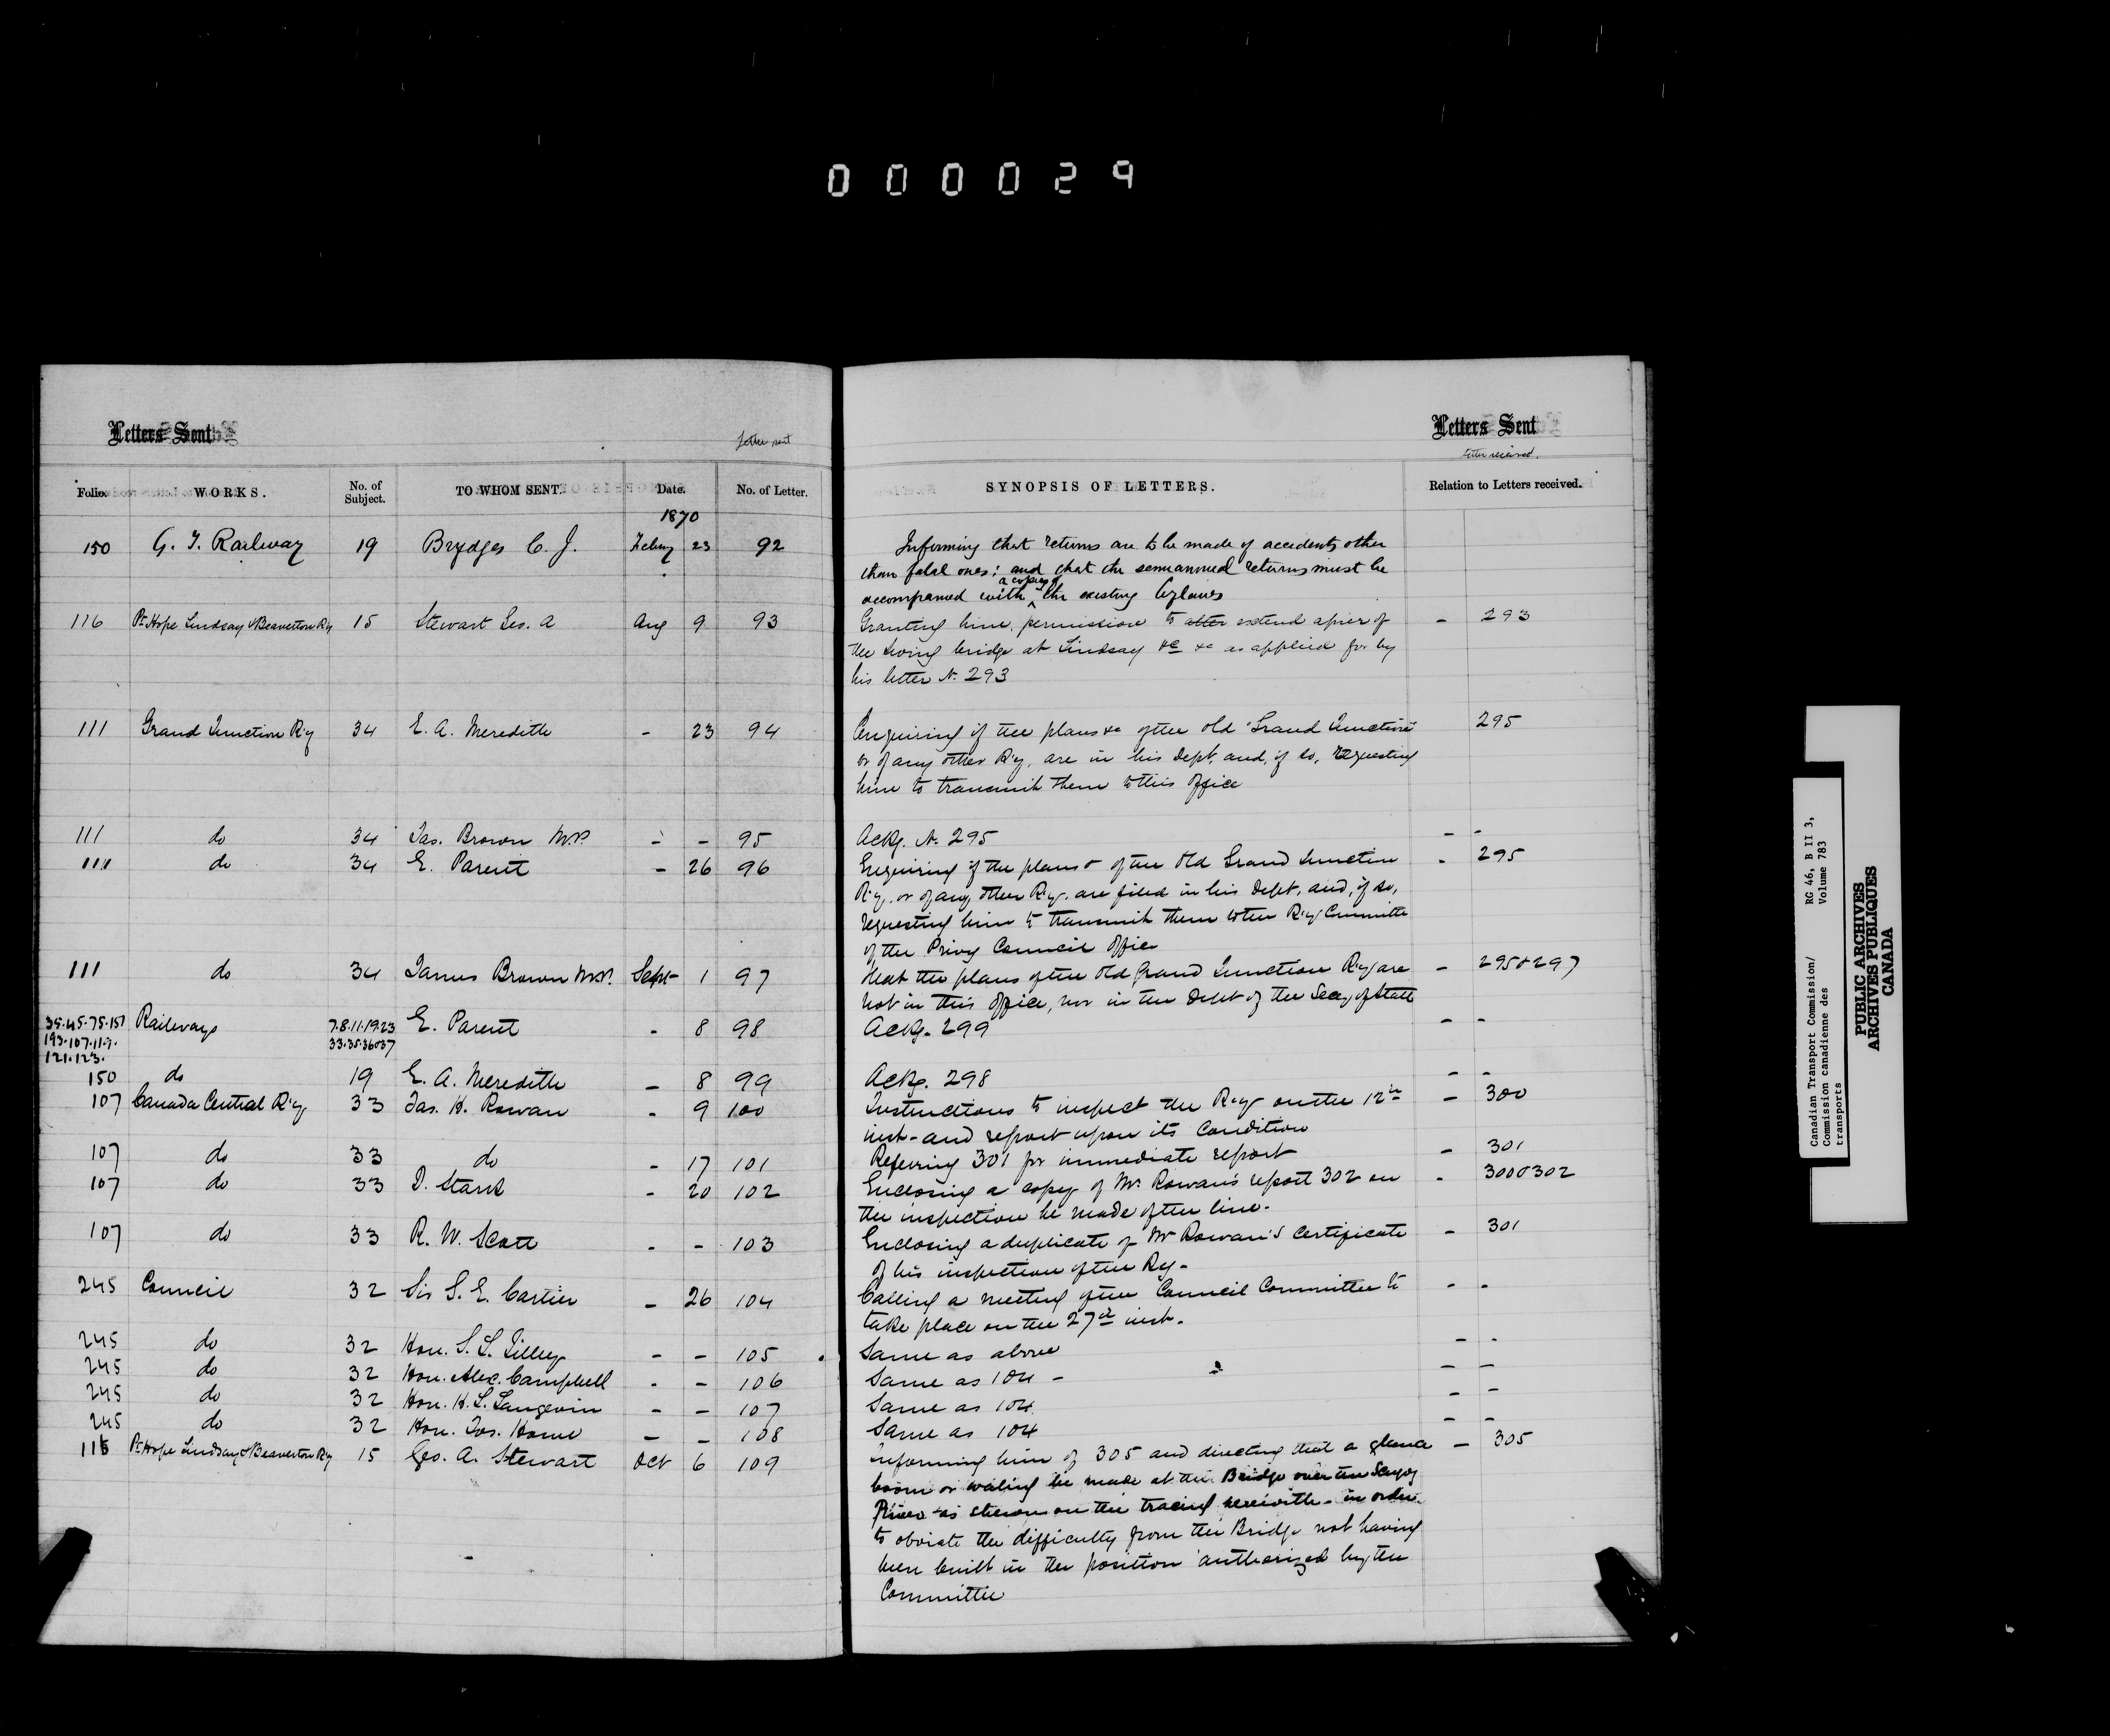 000029
Letters Sent
Letter sent
Folio. WORKS. No. of Subject. TO WHOM SENT. Date. No. of Letter.
1870
150 G. T. Railway 19 Brydges C. J. Febry 23 92
116 Pt Hope Lindsay & Beaverton Ry 15 Stewart Geo. A Aug 9 93
111 Grand Junction Ry 34 E. A. Meredith - 23 94
111 do 34 Jas. Brown M.P. - - 95
111 do 34 E. Parent - 26 96
111 do 34 James Brown M.P. Sept 1 97
35.45.75.151 Railways 7.8.11.19.23 E. Parent - 8 98
193.107.119. 33.35.36&37
121.123.
150 do 19 E. A. Meredith - 8 99
107 Canada Central Ry 33 Jas. H. Rowan - 9 100
107 do 33 do - 17 101
107 do 33 D. Stark - 20 102
107 do 33 R. W. Scott - - 103
245 Council 32 Sir G. E. Cartier - 26 104
245 do 32 Hon. S. L. Tilley - - 105
245 do 32 Hon. Alex. Campbell - - 106
245 do 32 Hon. H. L. Langevin - - 107
245 do 32 Hon. Jos. Howe - - 108
116 Pt Hope Lindsay & Beaverton Ry 15 Geo. A. Stewart Oct 6 109
Letters Sent
letter received.
SYNOPSIS OF LETTERS. Relation to Letters received.
Informing that returns are to be made of accidents other
than fatal ones; and that the semiannual returns must be
a copies of
accompanied with ^ the existing bylaws
Granting him permission to alter extend a pier of - 293
the swing bridge at Lindsay &c &c as applied for by
his letter No. 293
Enquiring if the plans &c of the old "Grand Junction" 295
or of any other Ry. are in his Dept. and, if so, requesting
him to transmit them to this office
Ackg. No. 295 - -
Enquiring if the plans & of the old Grand Junction - 295
Ry. or of any other Ry. are filed in his Dept. and, if so,
requesting him to transmit them to the Ry Committe
of the Privy Council office
That the plans of the old Grand Junction Ry are - 295&297
not in this office, nor in the Dept of the Secy of State
Ackg. 299 - -
Ackg. 298 - -
Instructions to inspect the Ry on the 12th - 300
inst - and report upon its condition
Referring 301 for immediate report - 301
Enclosing a copy of Mr. Rowan's report 302 on - 300&302
the inspection he made of the line.
Enclosing a duplicate of Mr Rowan's Certificate - 301
of his inspection of the Ry -
Calling a meeting of the Council Committee to - -
take place on the 27th inst.
Same as above - -
Same as 104 - - -
Same as 104 - -
Same as 104 - -
Informing him of 305 and directing that a - 305
boom or waling be made at the Bridge over the Scugog
River as shewn on the tracing herewith - in order
to obviate the difficulty from the Bridge not having
been built in the position authorized by the
Committee
Canadian Transport Commission/ RG 46, B II 3,
Commission canadienne des Volume 783
transports
PUBLIC ARCHIVES
ARCHIVES PUBLIQUES
CANADA